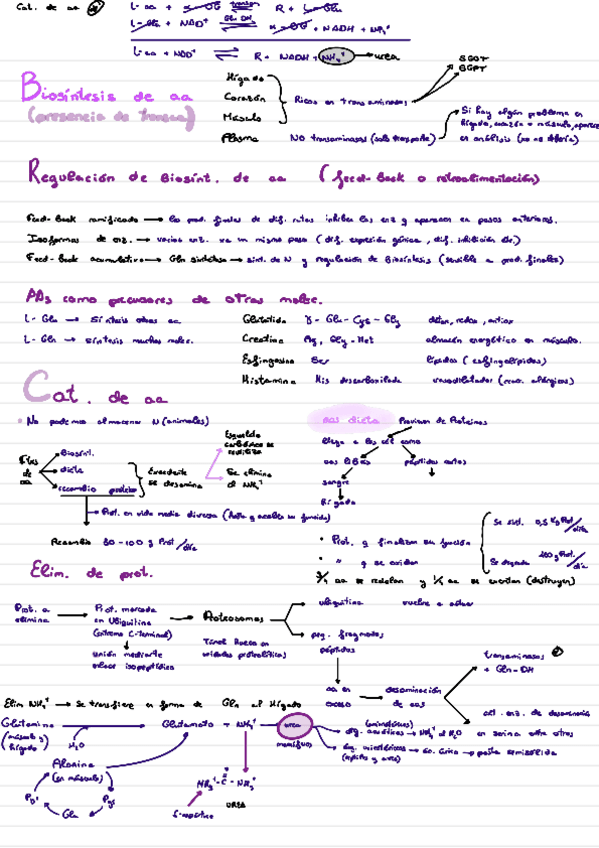 Cat. de aa
L-aa + α-OG ⇌ R + L-Glu
L-Glu + NAD⁺ ⇌ α-OG + NADH + NH₄⁺
Glu DH
L-aa + NAD⁺ ⇌ R + NADH + NH₄⁺ → urea
SGOT
SGPT
Biosíntesis de aa
(presencia de transa)
Hígado
Corazón
Músculo
Ricos en transaminasas
Plasma
NO transaminasas (solo transporte)
Si hay algún problema en
hígado, corazón o músculo, aparece
en análisis (no se debería)
Regulación de Biosínt. de aa (feed-Back o retroalimentación)
Feed-Back ramificado → los prod. finales de dif. rutas inhiben las enz y aparecen en pasos anteriores.
Isoformas de enz. → varias enz. en un mismo paso (dif. expresión génica, dif. inhibición etc.)
Feed-Back acumulativo → Gln sintetasa → sint. de N y regulación de Biosíntesis (sensible a prod. finales)
AAs como precursores de otras molec.
L-Glu → síntesis otros aa
L-Gln → síntesis muchas molec.
Glutatión γ-Glu-Cys-Gly
Creatina Ag, Gly-Met almacén energético en músculo.
Esfingosina Ser lípidos (esfingolípidos)
Histamina His descarboxilada vasodilatador (reac. alérgicas)
Cat. de aa
• No podemos almacenar N (animales)
aas dieta
Provienen de Proteínas
Esqueleto
carbonoso se
reutiliza
Se elimina
el NH₄⁺
Biosínt.
dieta
recambio proteico
de
aa
Excedente
se desamina
llega a las cél como
aas libres
péptidos cortos
sangre
Hígado
Prot. en vida media diversa
Recambio 30-100 g Prot/día
• Prot. q finalizan su función
• " q se oxidan
Se sint. 0,5 Kg Prot/día
Se degrada
3/4 aa se reciclan y 1/4 aa se oxidan (destruyen)
Elim. de prot.
Prot. a
elimina
Prot. marcada
en Ubiquitina
(extremo C-terminal)
unión mediante
enlace isopeptídico
Proteosomas
Túnel hueco en
unidades proteolíticas
ubiquitina vuelve a actuar
peq. fragmentos
péptidos
aa en
exceso
desaminación
de aas
transaminasas
+ Gln-DH
act. enz. de desaminasa
en serina entre otros
Elim NH₄⁺ → Se transfiere en forma de Gln al Hígado
Glutamina
(músculo y
hígado)
H₂O
Glutamato + NH₄⁺
urea
mamíferos
org. acuáticos → NH₄⁺ al H₂O
ác. úrico → pasta semisólida
(reptiles y aves)
Alanina
(en músculo)
Pyr
Glu
UREA